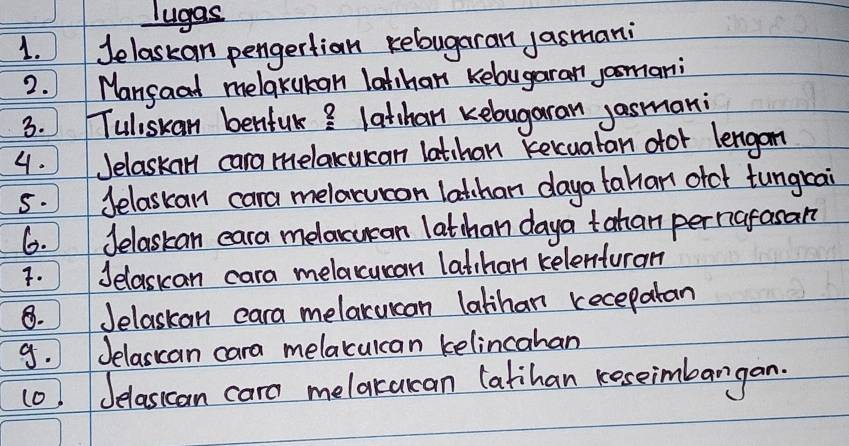 Tugas
1. Jelaskan pengertian kebugaran jasmani
2. Manfaat melakukan latihan kebugaran jasmani
3. Tuliskan bentuk 2 latihan kebugaran jasmani
4. Jelaskan cara melakukan latihan kekuatan otot lengan
5. Jelaskan cara melakukan latihan daya tahan otot tungkai
6. Jelaskan cara melakukan latihan daya tahan pernafasan
7. Jelaskan cara melakukan latihan kelenturan
8. Jelaskan cara melakukan latihan kecepatan
9. Jelaskan cara melakukan kelincahan
10. Jelaskan cara melakukan latihan keseimbangan.